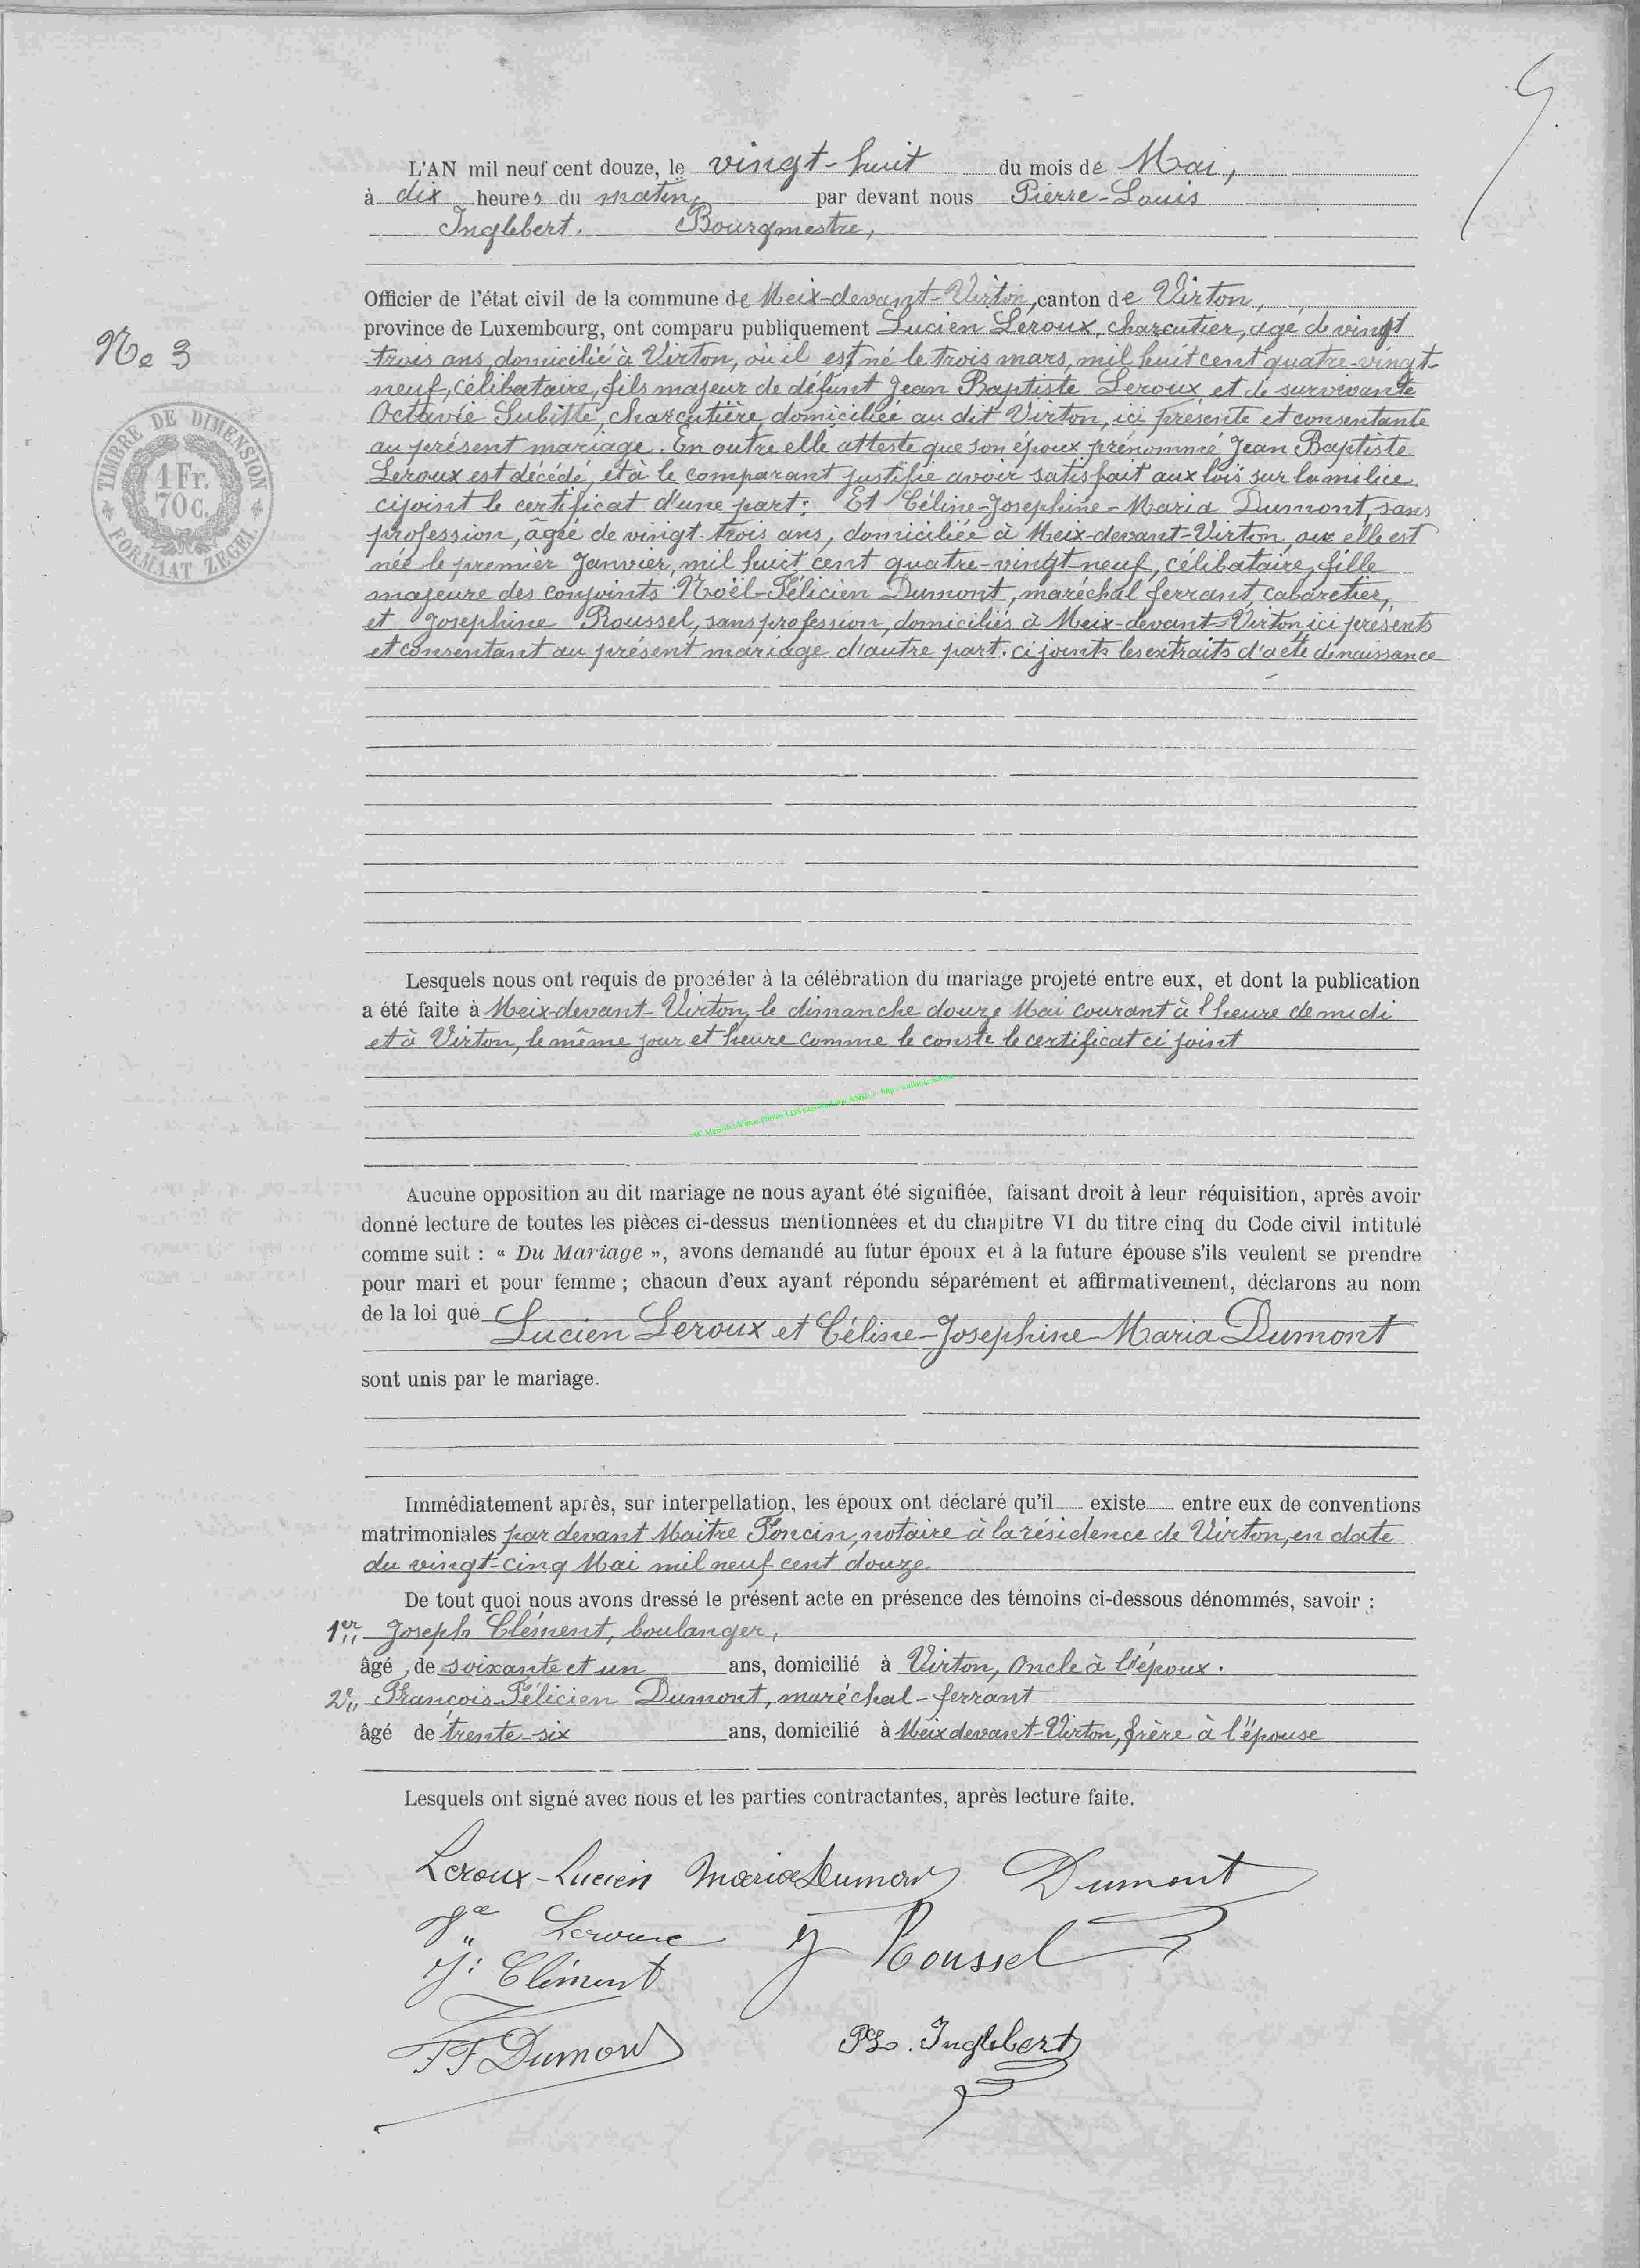 5.
L'AN mil neuf cent douze, le vingt-huit du mois de Mai,
à dix heures du matin, par devant nous Pierre-Louis
Inglebert. Bourgmestre,
Officier de l'état civil de la commune de Meix-devant-Virton, canton de Virton,
province de Luxembourg, ont comparu publiquement Lucien Leroux, charcutier, âgé de vingt
No 3
trois ans, domicilié à Virton, où il est né le trois mars, mil huit cent quatre-vingt-
neuf, célibataire, fils majeur de défunt Jean Baptiste Leroux et de survivante
Octavie Lubitte, charcutière, domiciliée au dit Virton, ici présente et consentante
au présent mariage. En outre elle atteste que son époux prénommé Jean Baptiste
Leroux est décédé, et à le comparant justifié avoir satisfait aux lois sur la milice
cijoint le certificat d'une part: Et Céline-Josephine-Maria Dumont, sans
profession, âgée de vingt-trois ans, domiciliée à Meix-devant-Virton, où elle est
née le premier Janvier, mil huit cent quatre-vingt-neuf, célibataire, fille
majeure des conjoints Noël-Félicien Dumont, maréchal ferrant, cabaretier,
et Josephine Roussel, sans profession, domiciliés à Meix-devant-Virton ici présents
et consentant au présent mariage d'autre part. ci joints les extraits d'acte de naissance
TIMBRE DE DIMENSION
1 Fr.
70 c.
FORMAAT ZEGEL
Lesquels nous ont requis de procéder à la célébration du mariage projeté entre eux, et dont la publication
a été faite à Meix-devant-Virton, le dimanche douze Mai courant à l'heure de midi
et à Virton, le même jour et heure comme le conste le certificat ci joint
Aucune opposition au dit mariage ne nous ayant été signifiée, faisant droit à leur réquisition, après avoir
donné lecture de toutes les pièces ci-dessus mentionnées et du chapitre VI du titre cinq du Code civil intitulé
comme suit : « Du Mariage », avons demandé au futur époux et à la future épouse s'ils veulent se prendre
pour mari et pour femme ; chacun d'eux ayant répondu séparément et affirmativement, déclarons au nom
de la loi que
Lucien Leroux et Céline-Josephine Maria Dumont
sont unis par le mariage.
Immédiatement après, sur interpellation, les époux ont déclaré qu'il existe entre eux de conventions
matrimoniales par devant Maitre Poncin, notaire à la résidence de Virton, en date
du vingt-cinq Mai mil neuf cent douze
De tout quoi nous avons dressé le présent acte en présence des témoins ci-dessous dénommés, savoir :
1er Joseph Clément, boulanger,
âgé de soixante et un ans, domicilié à Virton, Oncle à l'époux.
2e François-Félicien Dumont, maréchal-ferrant
âgé de trente-six ans, domicilié à Meix devant-Virton, frère à l'épouse
Lesquels ont signé avec nous et les parties contractantes, après lecture faite.
Leroux-Lucien Maria Dumont Dumont
Vve Leroux J Roussel
J: Clément
FF Dumont PL. Inglebert